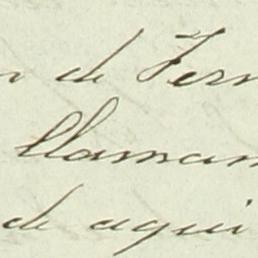 de Fern
llaman
de aqui